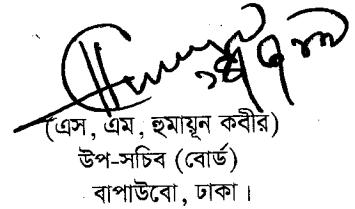 (এস, এম, হুমায়ূন কবীর)
উপ-সচিব (বোর্ড)
বাপাউবো, ঢাকা।